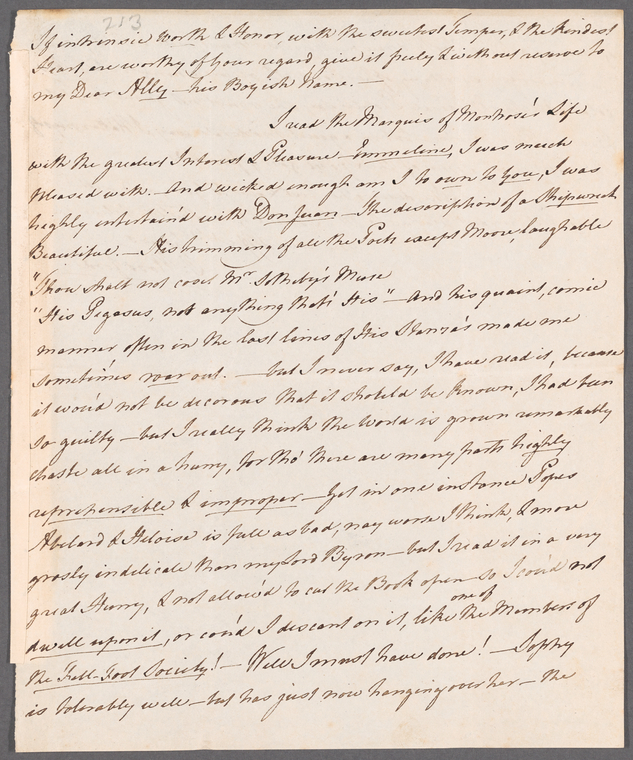 213
If intrinsic Worth & Honor, with the sweetest Temper, & the kindest
Heart, are worthy of your regard, give it freely & without reserve to
my Dear Ally - his Boyish Name. —
I read the Marquis of Montrose's Life
with the greatest Interest & Pleasure - Emmeline, I was much
pleased with. - And wicked enough am I to own to You, I was
highly entertain'd with Don Juan - The description of a Shipwreck
Beautiful. — His trimming of all the Poets except Moore, laughable
"Thou shalt not covet Mr. Sotheby's Muse
"His Pegasus, not anything that's His" - And his quaint, comic
manner often in the last lines of His Stanza's made me
sometimes roar out. — but I never say, I have read it, because
it wou'd not be decorous that it should be known, I had been
so guilty - but I really think the World is grown remarkably
chaste all in a hurry, for tho' there are many parts highly
reprehensible & improper - Yet in one instance Popes
Abelard & Heloise is full as bad, nay worse I think, & more
grosly indelicate than my Lord Byron - but I read it in a very
great Hurry, & not allow'd to cut the Book open - so I cou'd not
dwell upon it, or cou'd I descant on it, like one of the Members of
the Fall-Foot Society! - Well I must have done! - Sophy
is tolerably well - but has just now hanging over her - the